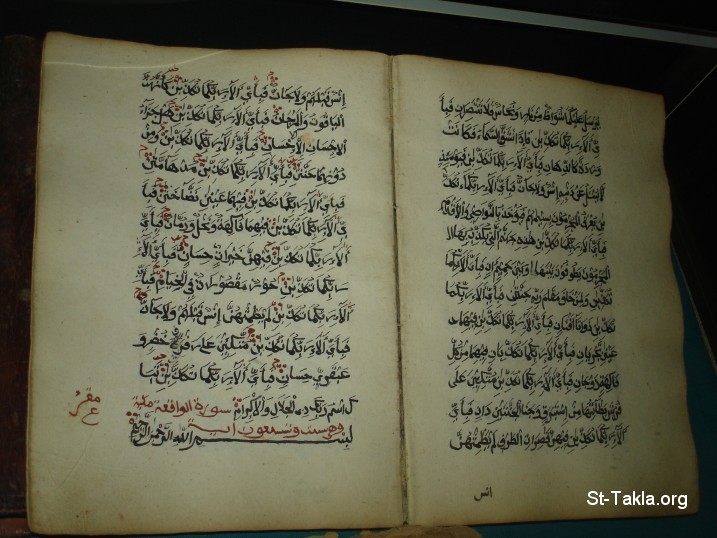 يرسل عليكما شواظ من نار ونحاس فلا تنتصران فبا
ي الاء ربكما تكذبن فاذا انشقت السماء فكانت
وردة كالدهان فباي الاء ربكما تكذبن فيومئذ
لا يسئل عن ذنبه انس ولا جان فباي الاء ربكما تكذ
بن يعرف المجرمون بسيمهم فيؤخذ بالنواصي والاقدام
فباي الاء ربكما تكذبن هذه جهنم التي يكذب بها
المجرمون يطوفون بينها وبين حميم ان فباي الاء ربكما
تكذبن ولمن خاف مقام ربه جنتن فباي الاء ربكما
تكذبن ذواتا افنان فباي الاء ربكما تكذبن فيهما
عينن تجريان فباي الاء ربكما تكذبن فيهما من كل
فاكهة زوجان فباي الاء ربكما تكذبن متكئين على
فرش بطائنها من استبرق وجنا الجنتين دان فباي
الاء ربكما تكذبن فيهن قصرات الطرف لم يطمثهن
انس
انس قبلهم ولا جان فباي الاء ربكما تكذبن كانهن
الياقوت والمرجان فباي الاء ربكما تكذبن هل جزاء
الاحسان الا الاحسان فباي الاء ربكما تكذبن ومن
دونهما جنتن فباي الاء ربكما تكذبن مدهامتن
فباي الاء ربكما تكذبن فيهما عينن نضاختن فبا
ي الاء ربكما تكذبن فيهما فاكهة ونخل ورمان فباي
الاء ربكما تكذبن فيهن خيرات حسان فباي الاء
ربكما تكذبن حور مقصورات في الخيام فباي
الاء ربكما تكذبن لم يطمثهن انس قبلهم ولا جان
فباي الاء ربكما تكذبن متكئين على رفرف خضر و
عبقري حسان فباي الاء ربكما تكذبن تبا
رك اسم ربك ذي الجلال والاكرام سورة الواقعة مكية
وهي ست وتسعون اية
بسم الله الرحمن الرحيم
مقرء
ع
St-Takla.org